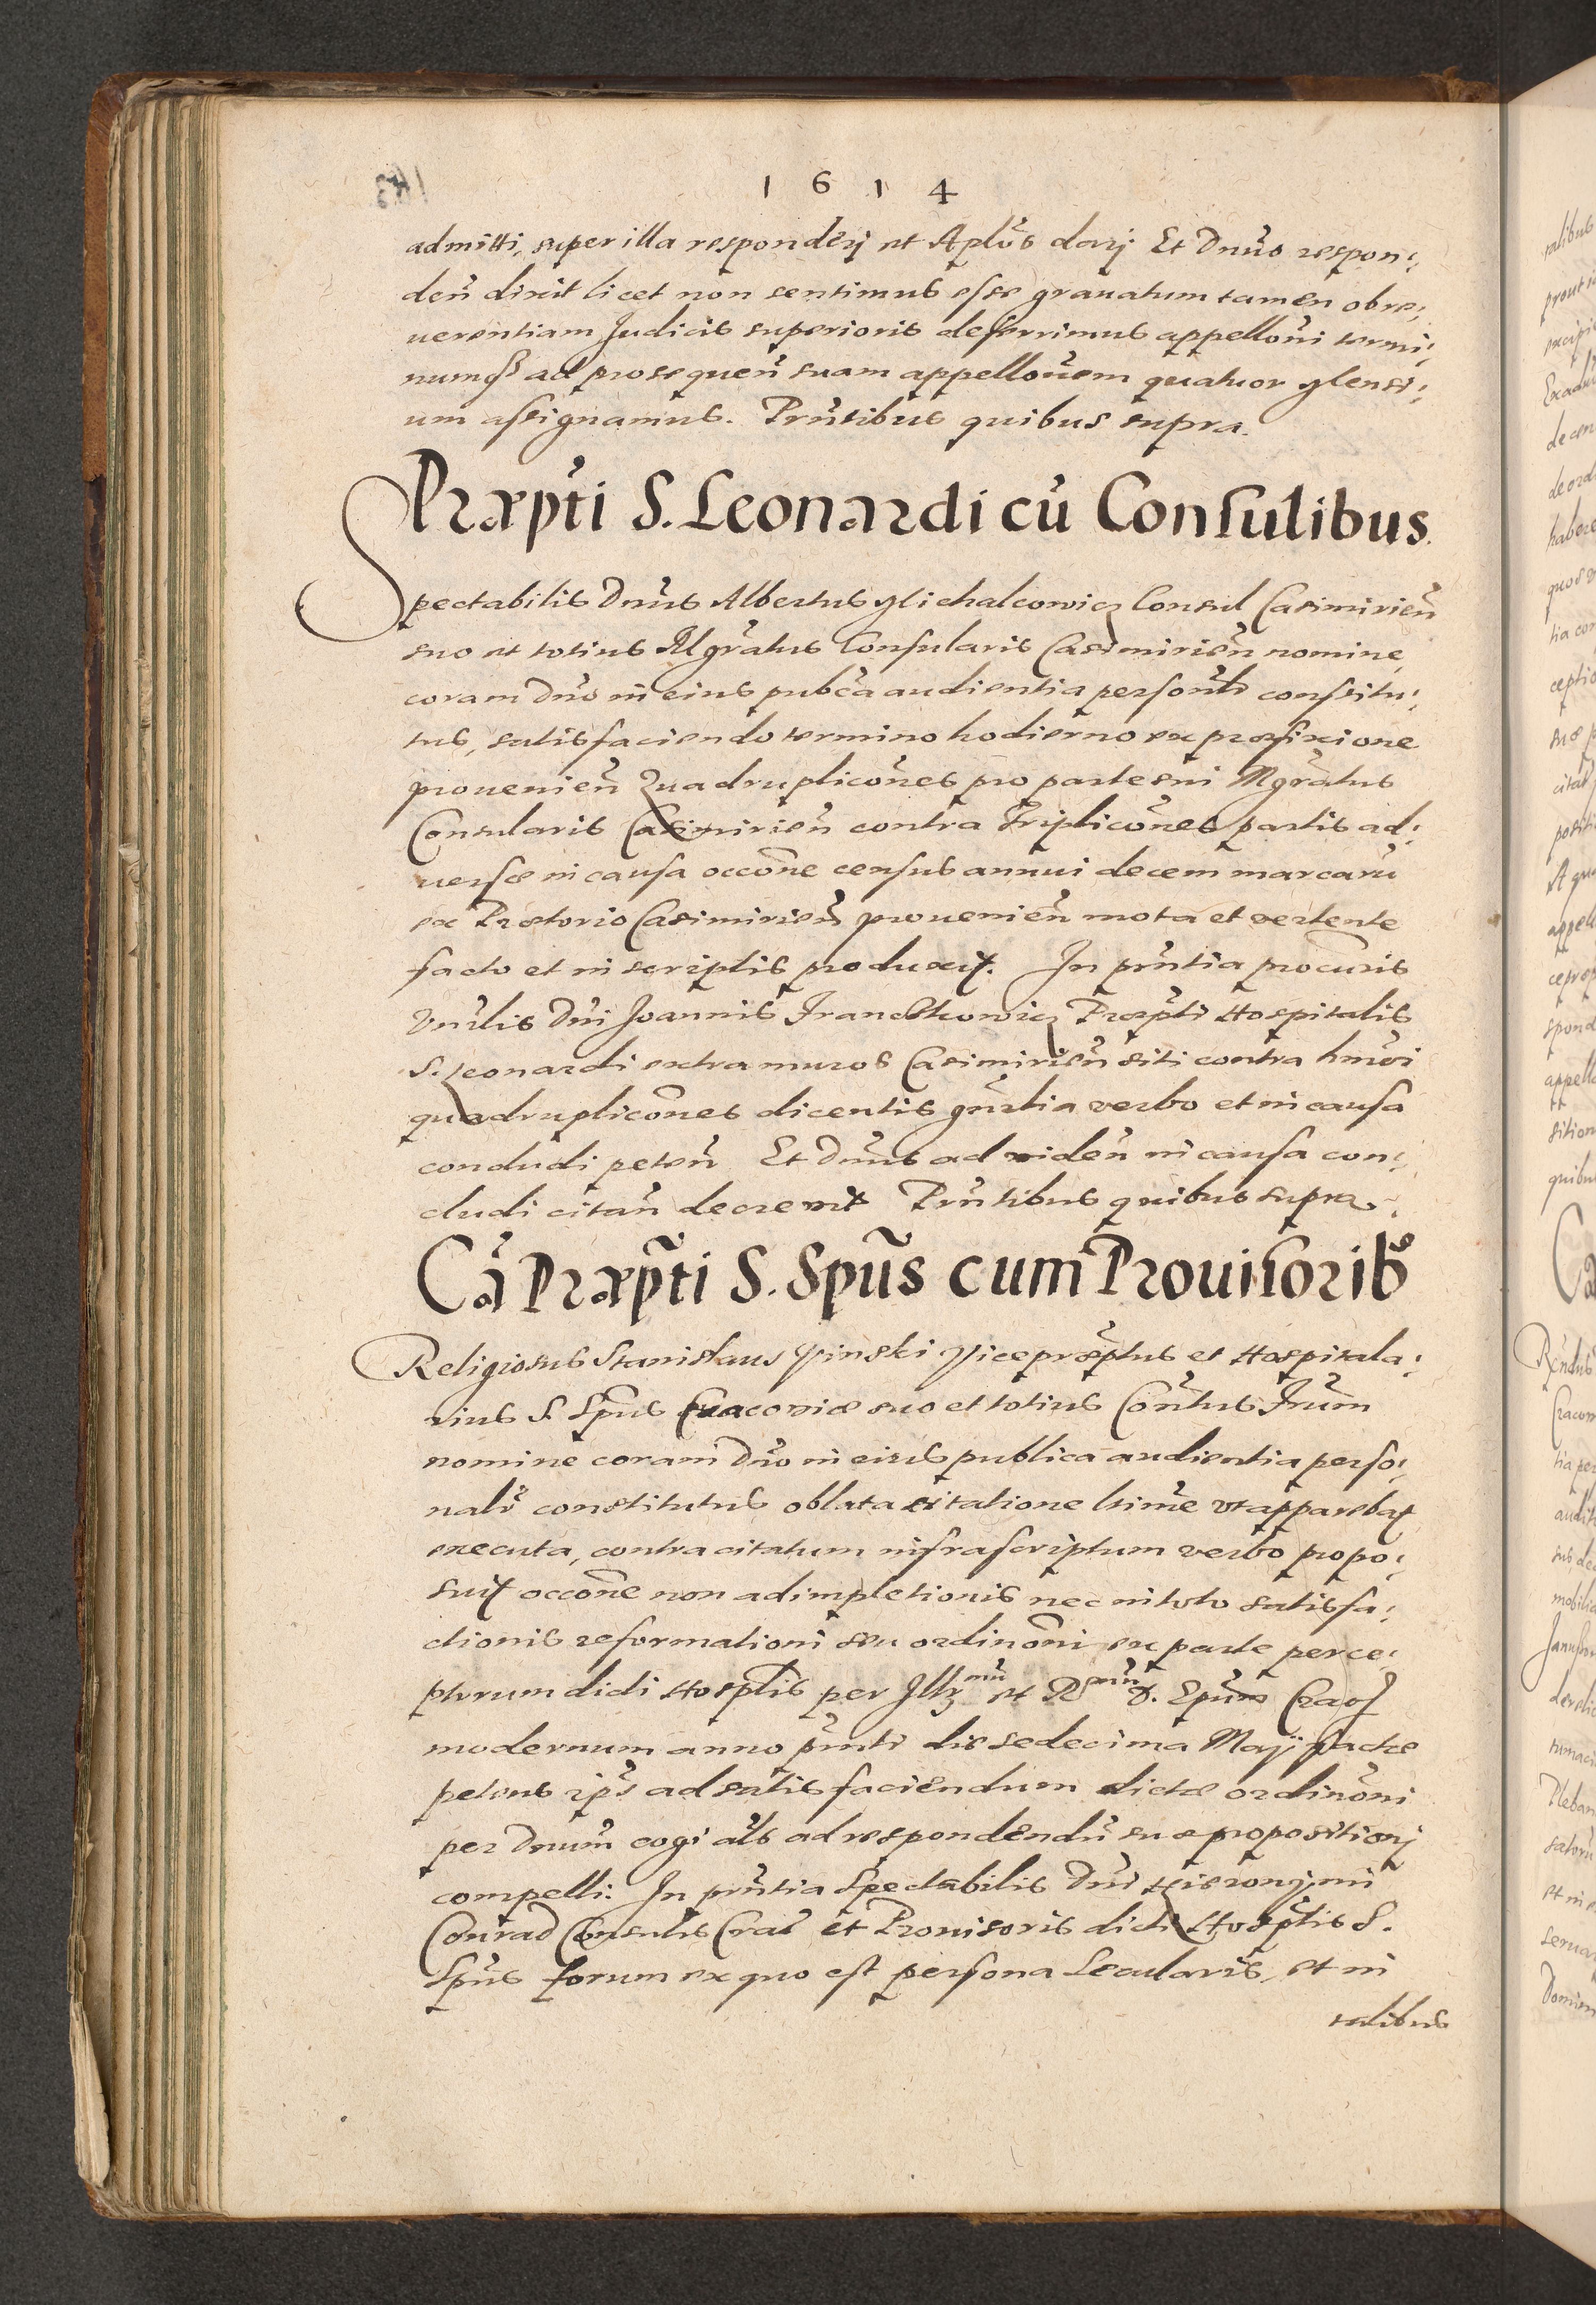 1614
admitti, super illa responderj et Aplõs darj Et Dnũs respon:
deñ dixit licet non sentimus esse grauatum tamen ob re:
uerentiam Judicis superioris deferrimus appellõni termi:
numq́ ad prosequeñ suam appellõnem quatuor Mensi:
um assignamus. Prñtibus quibus supra.
Præpti S. Leonardi cũ Consulibus.
Spectabilis Dnũs Albertus Michalcowicz Consul Casimirieñ
suo et totius Mgrãtus Consularis Casimirieñ nomine,
coram Dnõ in eius pubca audientia personlr constitu:
tus, satisfaciendo termino hodierno ex præfixione
prouenieñ Quadruplicões pro parte sui Mgrãtus
Consularis Casimirieñ contra Triplicões partis ad:
uersæ in causa occõne census annui decem marcarũ
ex Prætorio Casimirieñ prouenieñ mota et vertente
facto et in scriptis produxit. In prñtia procuris
Vnrlis Dni Joannis Franckowicz Præpti Hospitalis
S. Leonardi extra muros Casimirieñ siti contra hmõi
quadruplicões dicentis gnrlia verbo et in causa
concludi peteñ Et Dnũs ad videñ in causa con:
cludi citañ decreuit Prñtibus quibus supra.
Cã Præpti S. Spũs cum Prouisorib9
Religiosus Stanislaus Pinski Vicepræptus et Hospitala:
rius S. Spũs Cracouiæ suo et totius Conũtus Frũm
nomine coram Dnõ in eius publica audientia perso:
nalr constitutus oblata citatione ltime vt apparebat
executa, contra citatum infrascriptum verbo propo:
suit occõne non adimpletionis nec in toto satisfa:
ctionis reformationi seu ordinõni ex parte perce:
ptorum dicti Hosptlis per Illr mũ et R mũ D. Epũm Crac
modernum anno prñti die sedecima Maij factæ
petens ips ad satisfaciendum dictæ ordinõni
per Dnũm cogi als ad respondendũ suæ propositionj
compelli. In prñtia Spectabilis Dni Hieronymi
Conrad Consulis Crac et Prouisoris dicti Hosptlis S.
Spũs forum ex quo est persona Secularis, et in
talibus